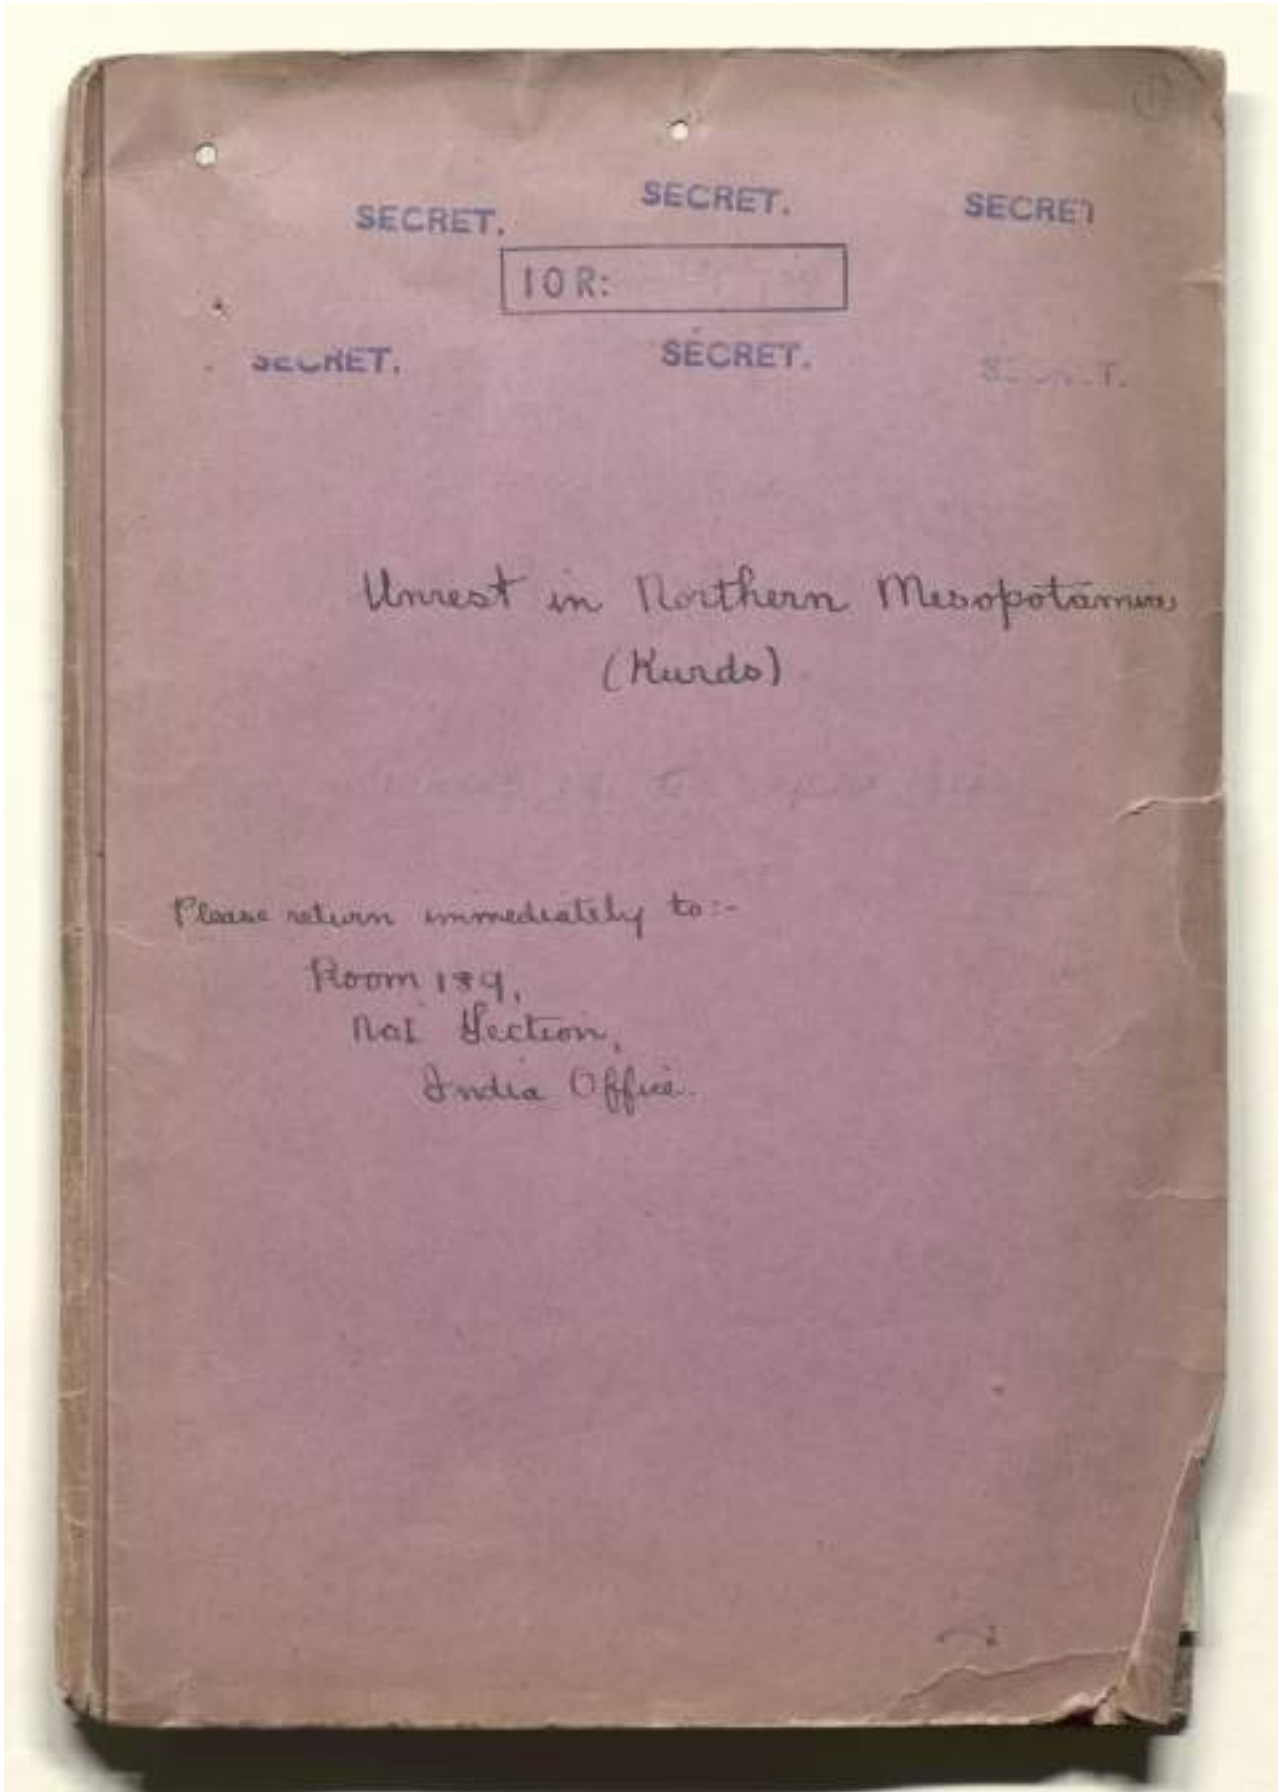 SECRET. SECRET. SECRET
IOR:
SECRET. SECRET.
Unrest in Northern Mesopotamia
(Kurds)
Please return immediately to:-
Room 189,
Section,
India Office.